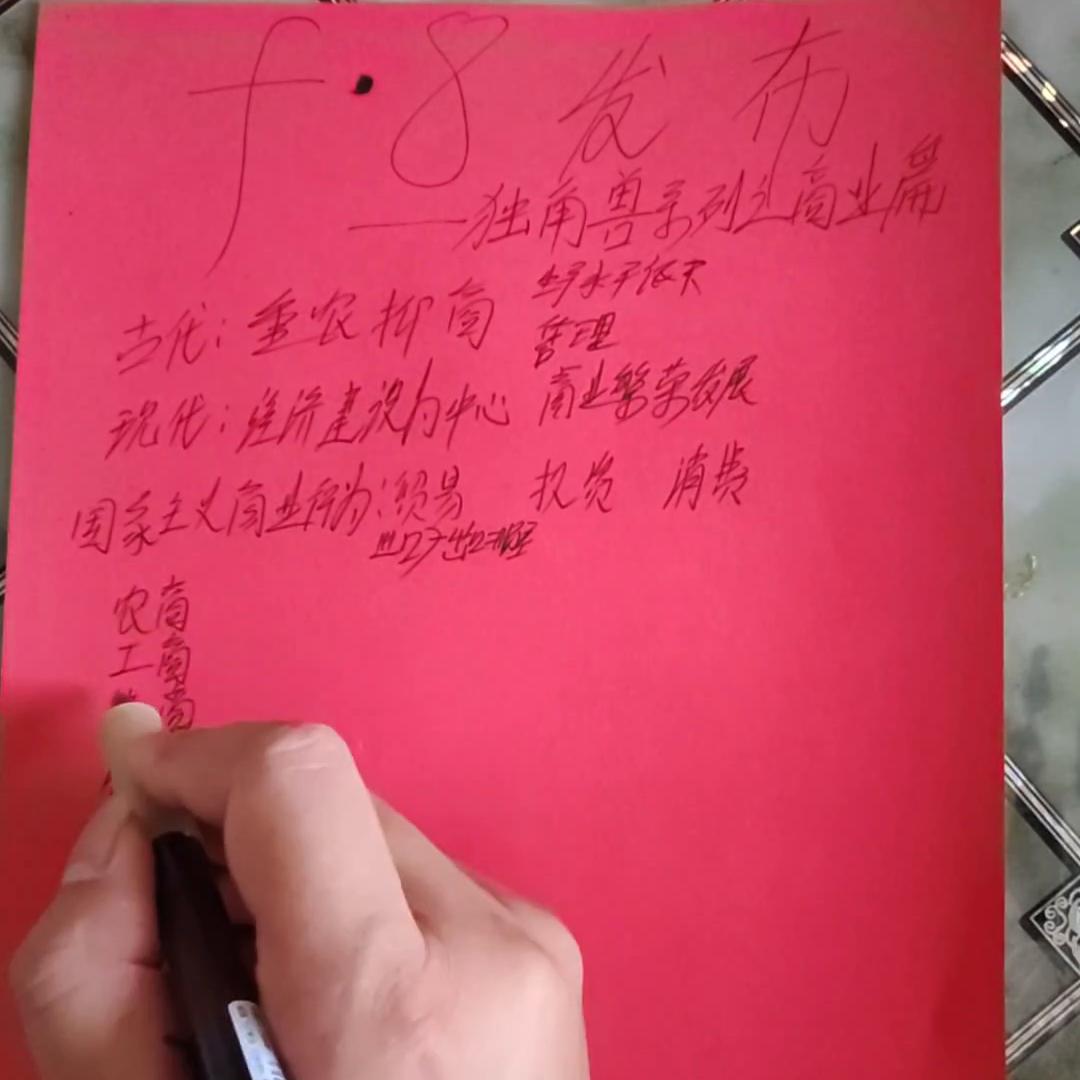 f·8 发布
——独角兽系列之商业篇
古代：重农抑商 生产水平低下
管理
现代：经济建设为中心 商业繁荣发展
国家主义商业行为：贸易 投资 消费
农商
工商
商